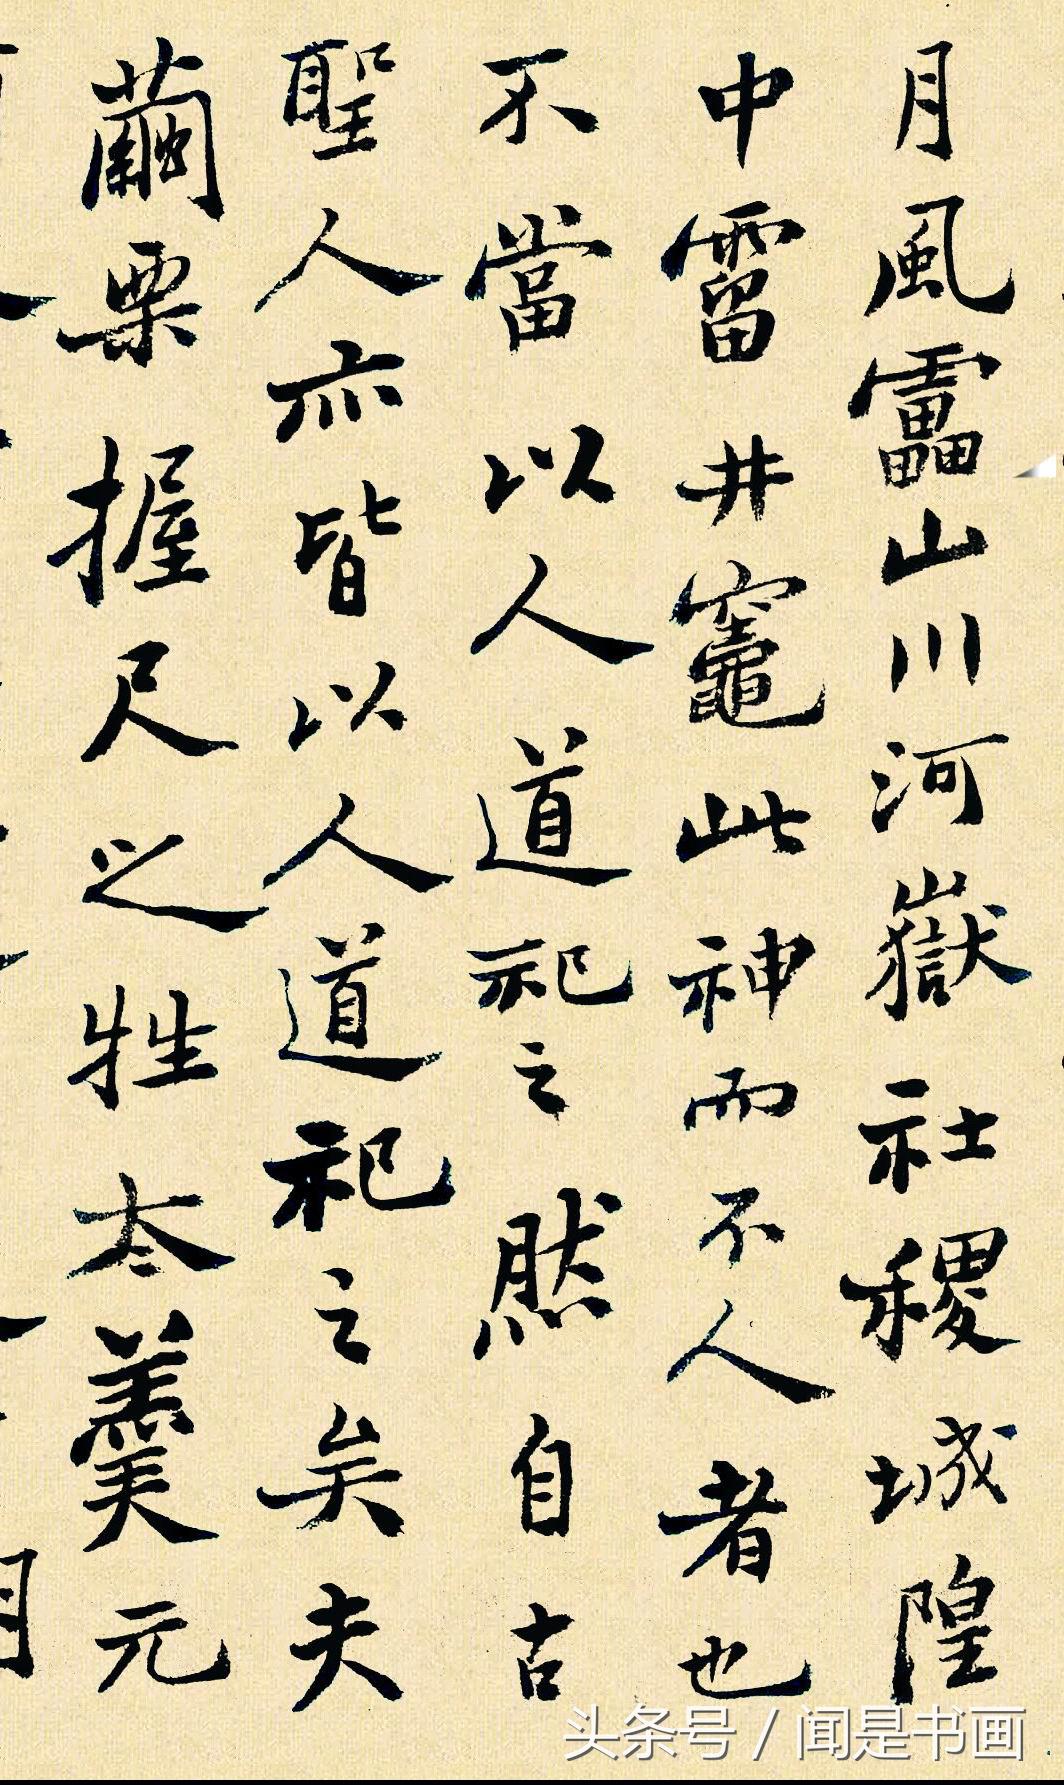 月風靁山川河嶽社稷城隍
中霤井竈此神而不人者也
不當以人道祀之然自古
聖人亦皆以人道祀之矣夫
繭栗握尺之牲太羹元
头条号 / 闻是书画